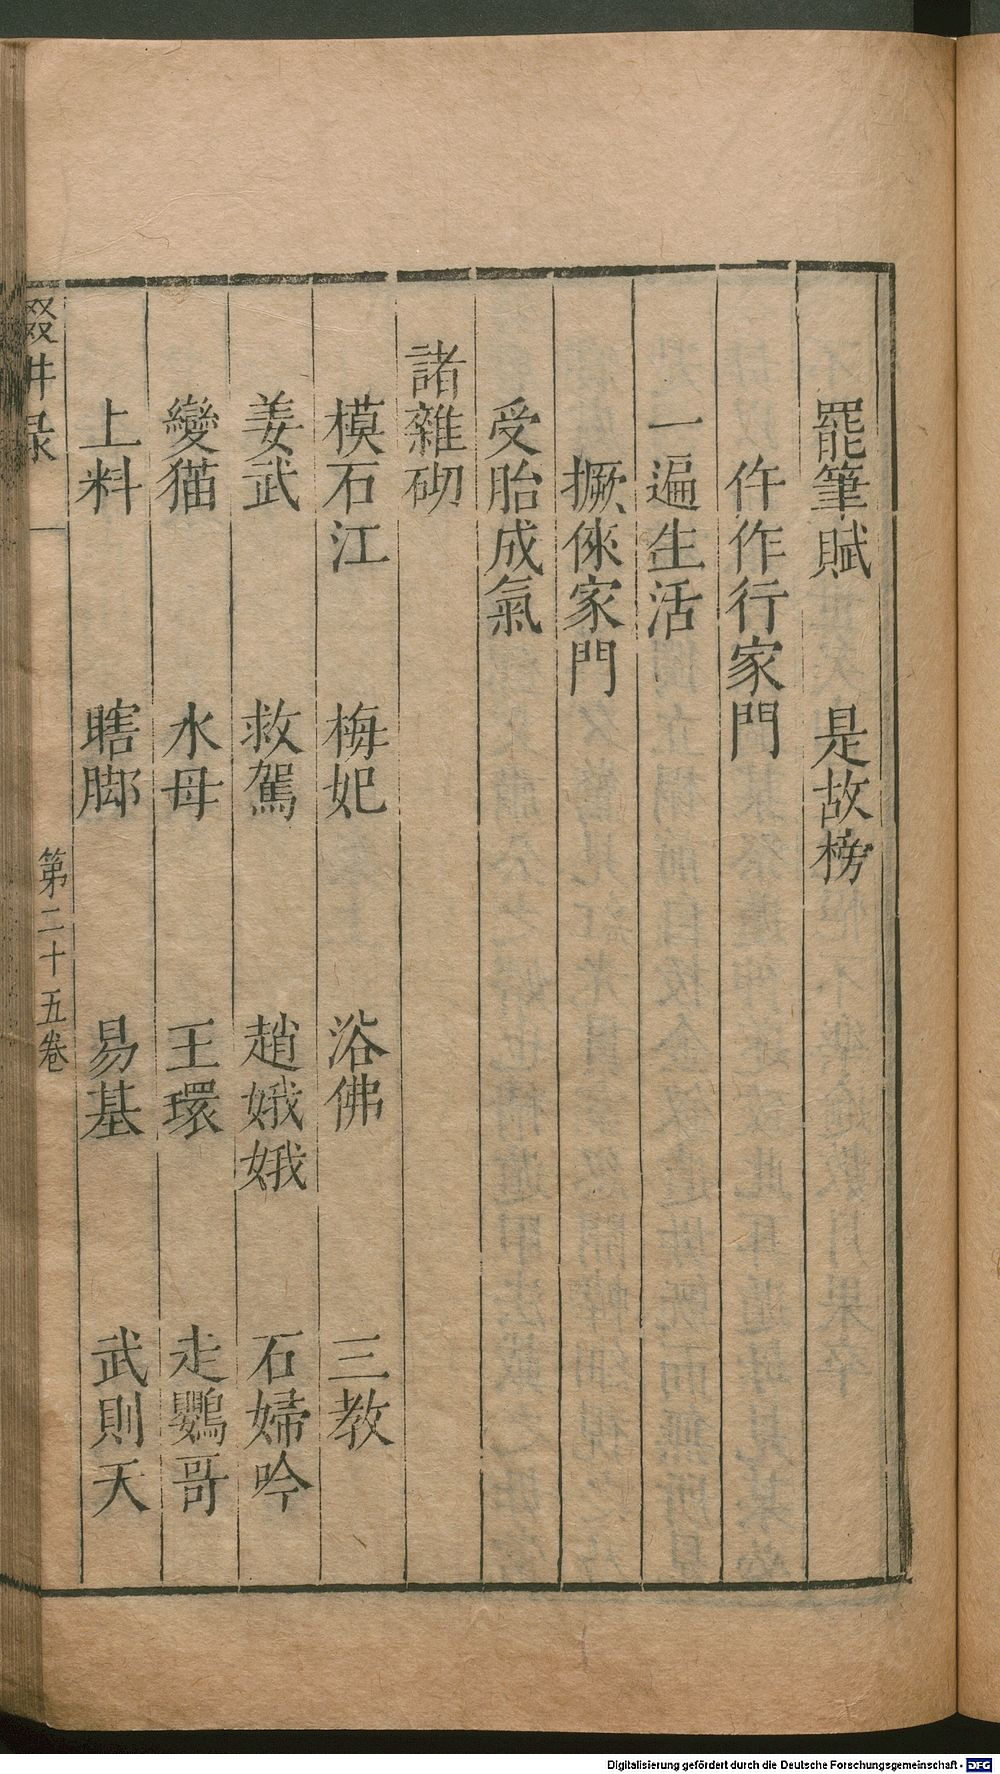 罷筆賦　是故榜
仵作行家門
一遍生活
撅倈家門
受胎成氣
諸雜砌
模石江　梅妃　浴佛　三教
姜武　救駕　趙娥娥　石婦吟
變猫　水母　王環　走鸚哥
上料　瞎脚　易基　武則天
輟畊录　第二十五卷
Digitalisierung gefördert durch die Deutsche Forschungsgemeinschaft - DFG